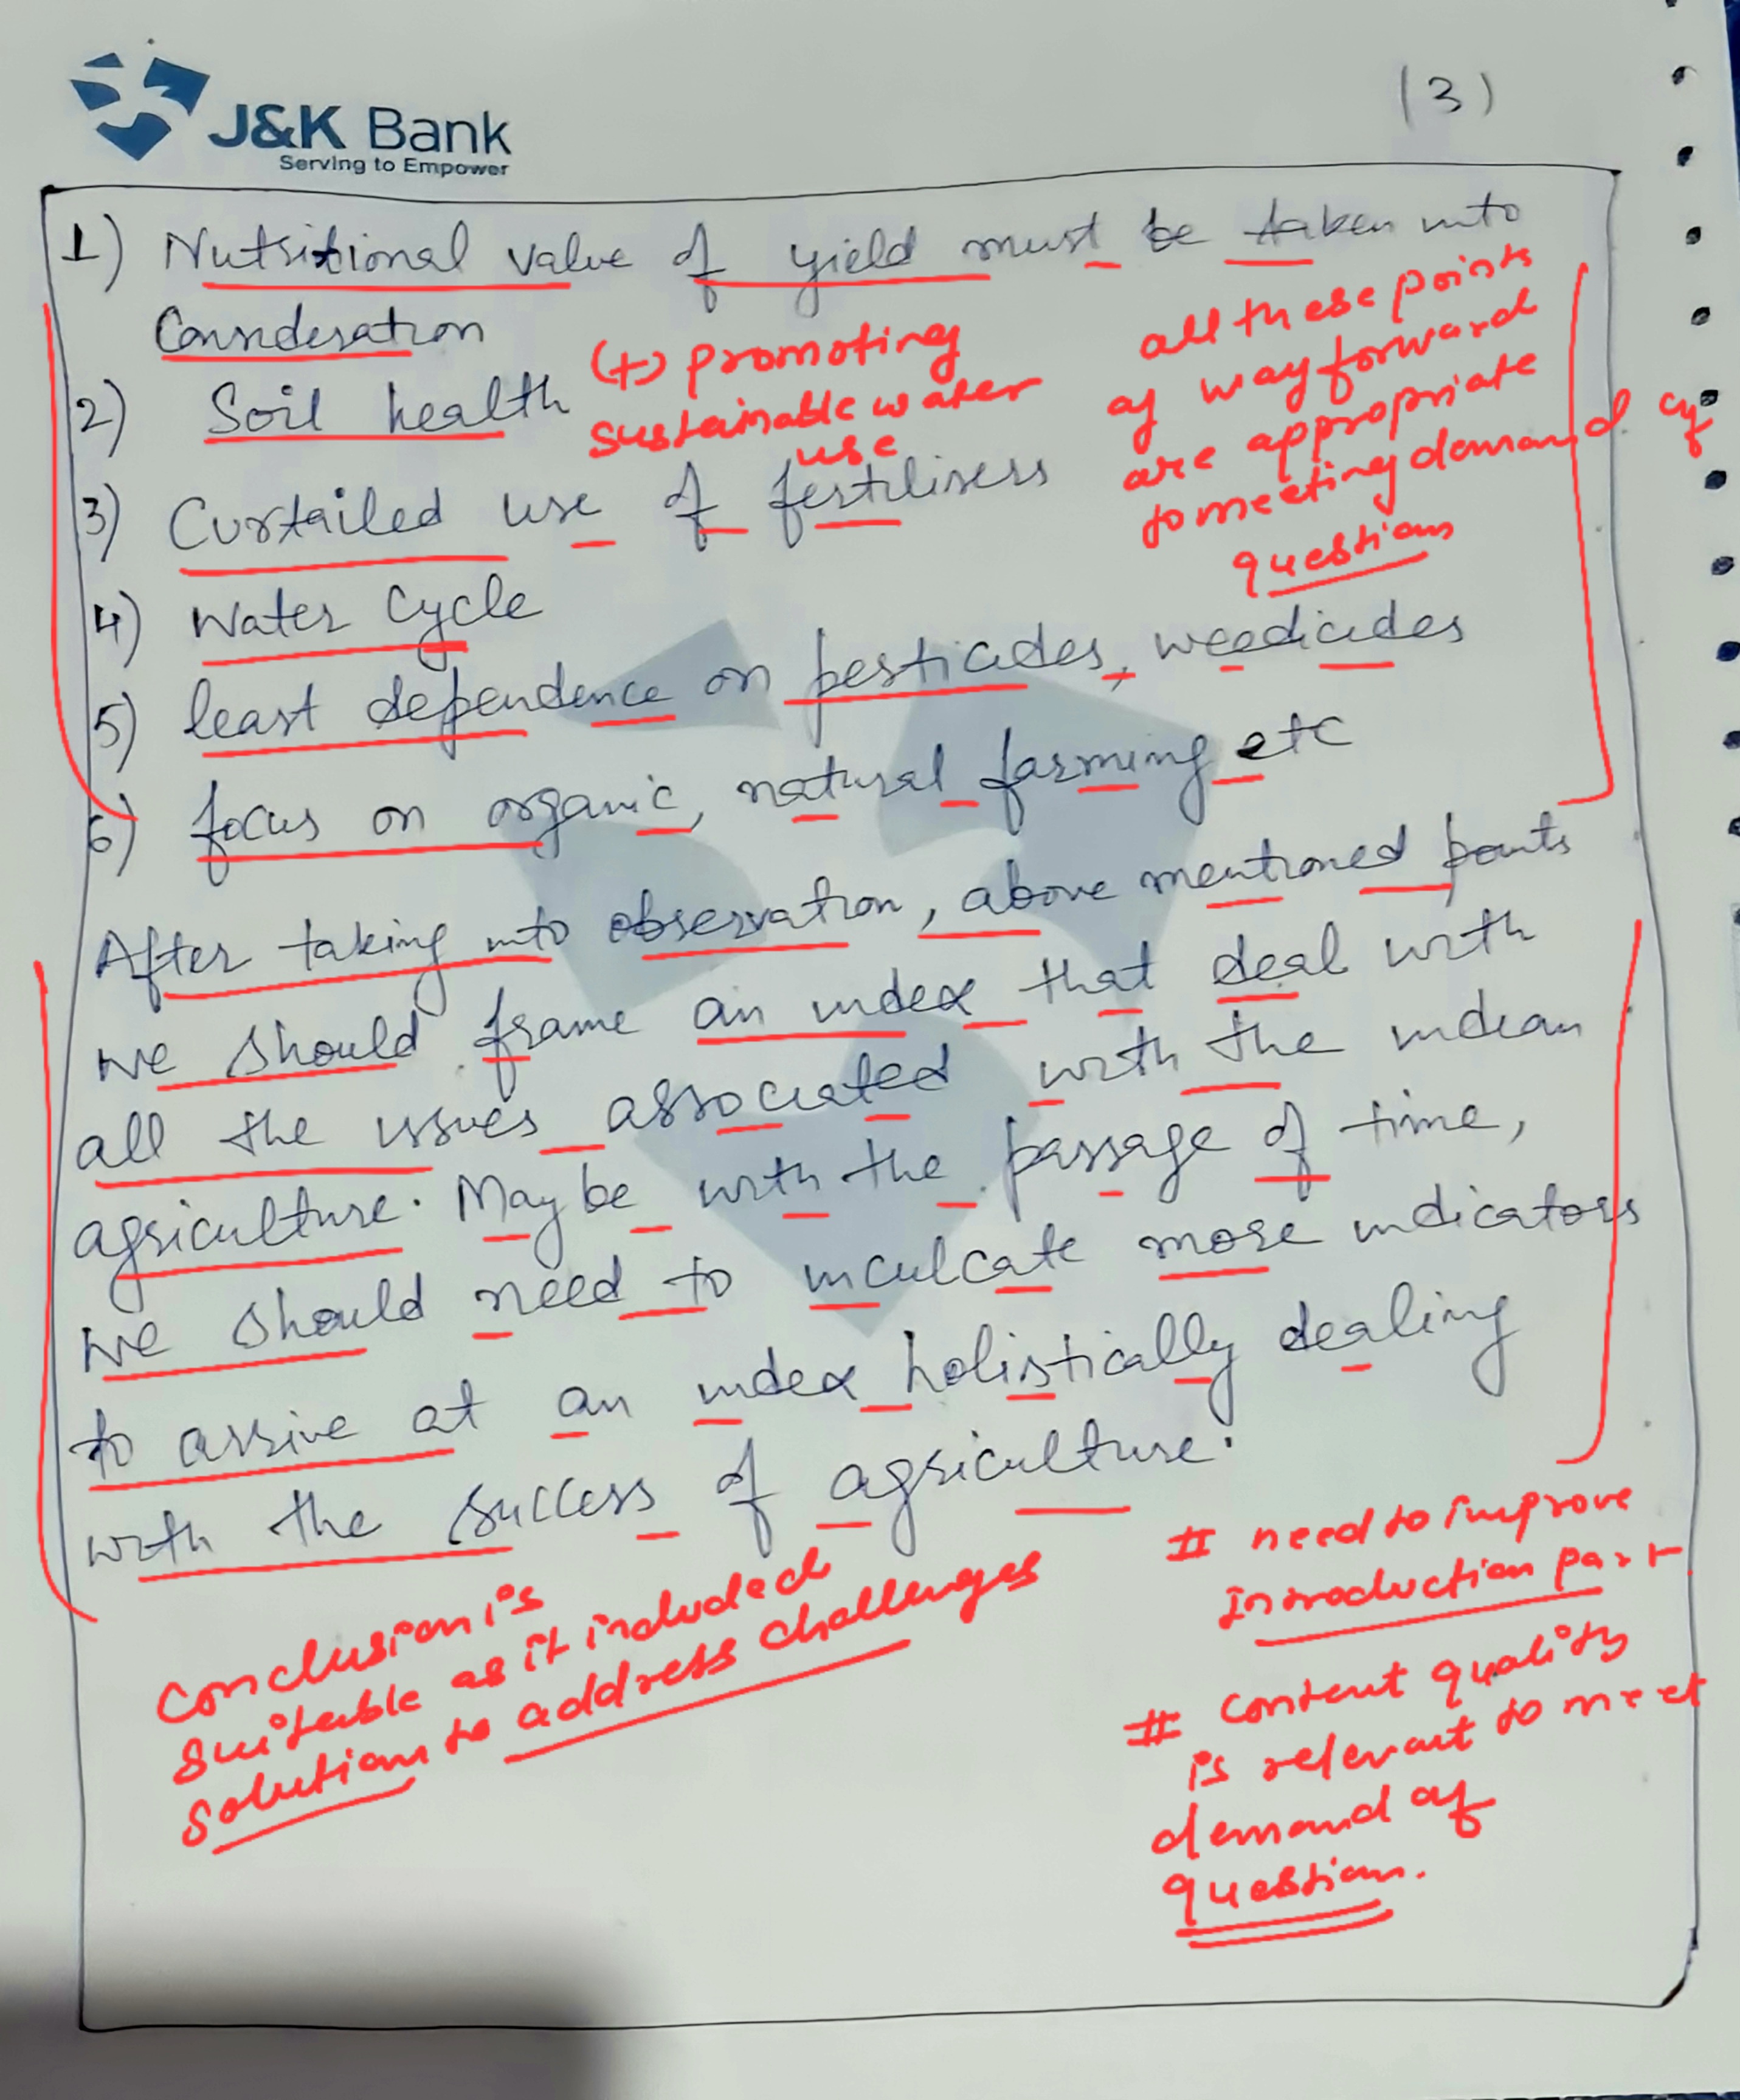 (3)
J&K Bank
Serving to Empower
1) Nutritional value of yield must be taken into
Consideration
(+) promoting
sustainable water
use
all these points
of way forward
are appropriate
to meeting demand of
question
2) Soil health
3) Curtailed use of fertilisers
4) Water Cycle
5) least dependence on pesticides, weedicides
6) focus on organic, natural farming etc
After taking into observation, above mentioned points
we should frame an index that deal with
all the issues associated with the indian
agriculture. May be with the passage of time,
we should need to inculcate more indicators
to arrive at an index holistically dealing
with the success of agriculture.
Conclusion is
suitable as it included
solution to address challenges
# need to improve
introduction part
# content quality
is relevant to meet
demand of
question.